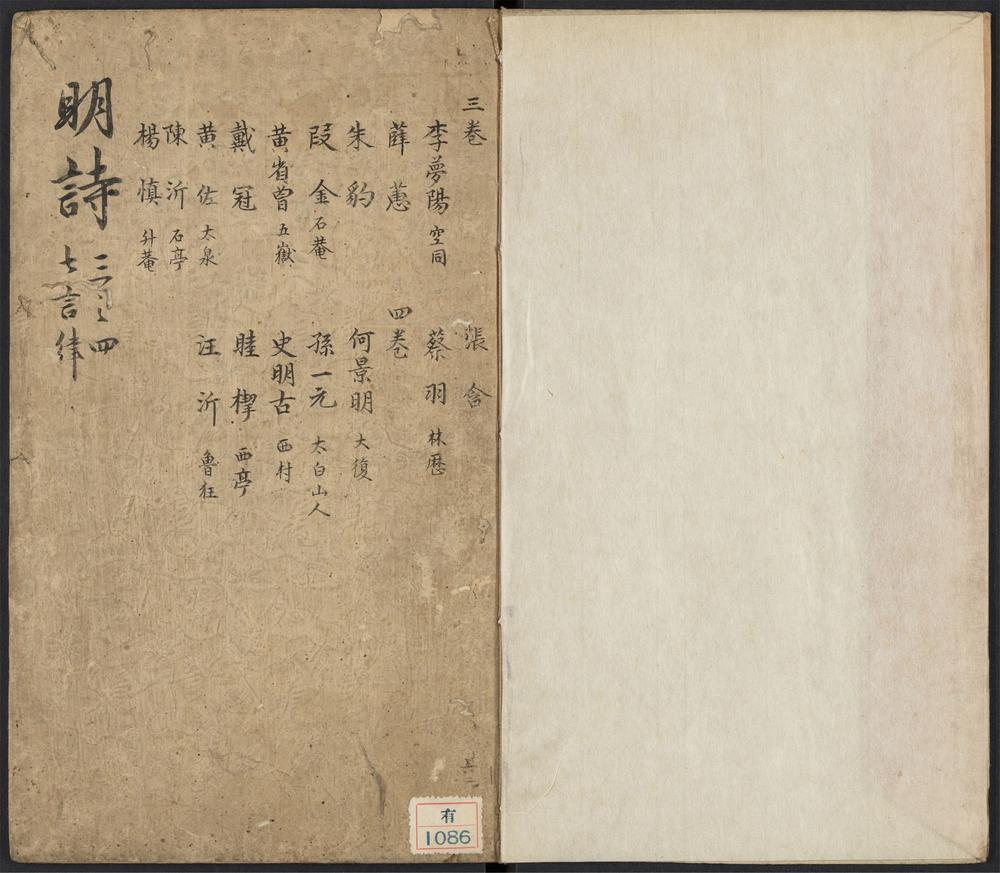 三卷
李夢陽 空同
薛蕙
朱豹
段金 石菴
黄省曾 五嶽
戴冠
黄佐 太泉
陳沂 石亭
楊慎 升菴
張含
蔡羽 林歴
四卷
何景明 大復
孫一元 太白山人
史明古 西村
睦㮮 西亭
汪沂 魯狂
明詩
三之四
七言律
其二
有
1086